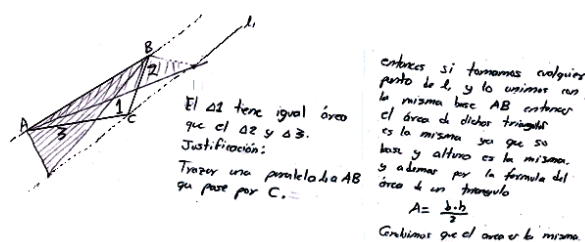 l₁
B
2
A
1
C
3
El Δ1 tiene igual área
que el Δ2 y Δ3.
Justificación:
Trazar una paralela l₁ a AB
que pase por C.
entonces si tomamos cualquier
punto de l₁ y lo unimos con
la misma base AB entonces
el área de dichos triangulos
es la misma ya que su
base y altura es la misma.
y ademas por la formula del
área de un triangulo
A= b·h/2
Concluimos que el area es la misma